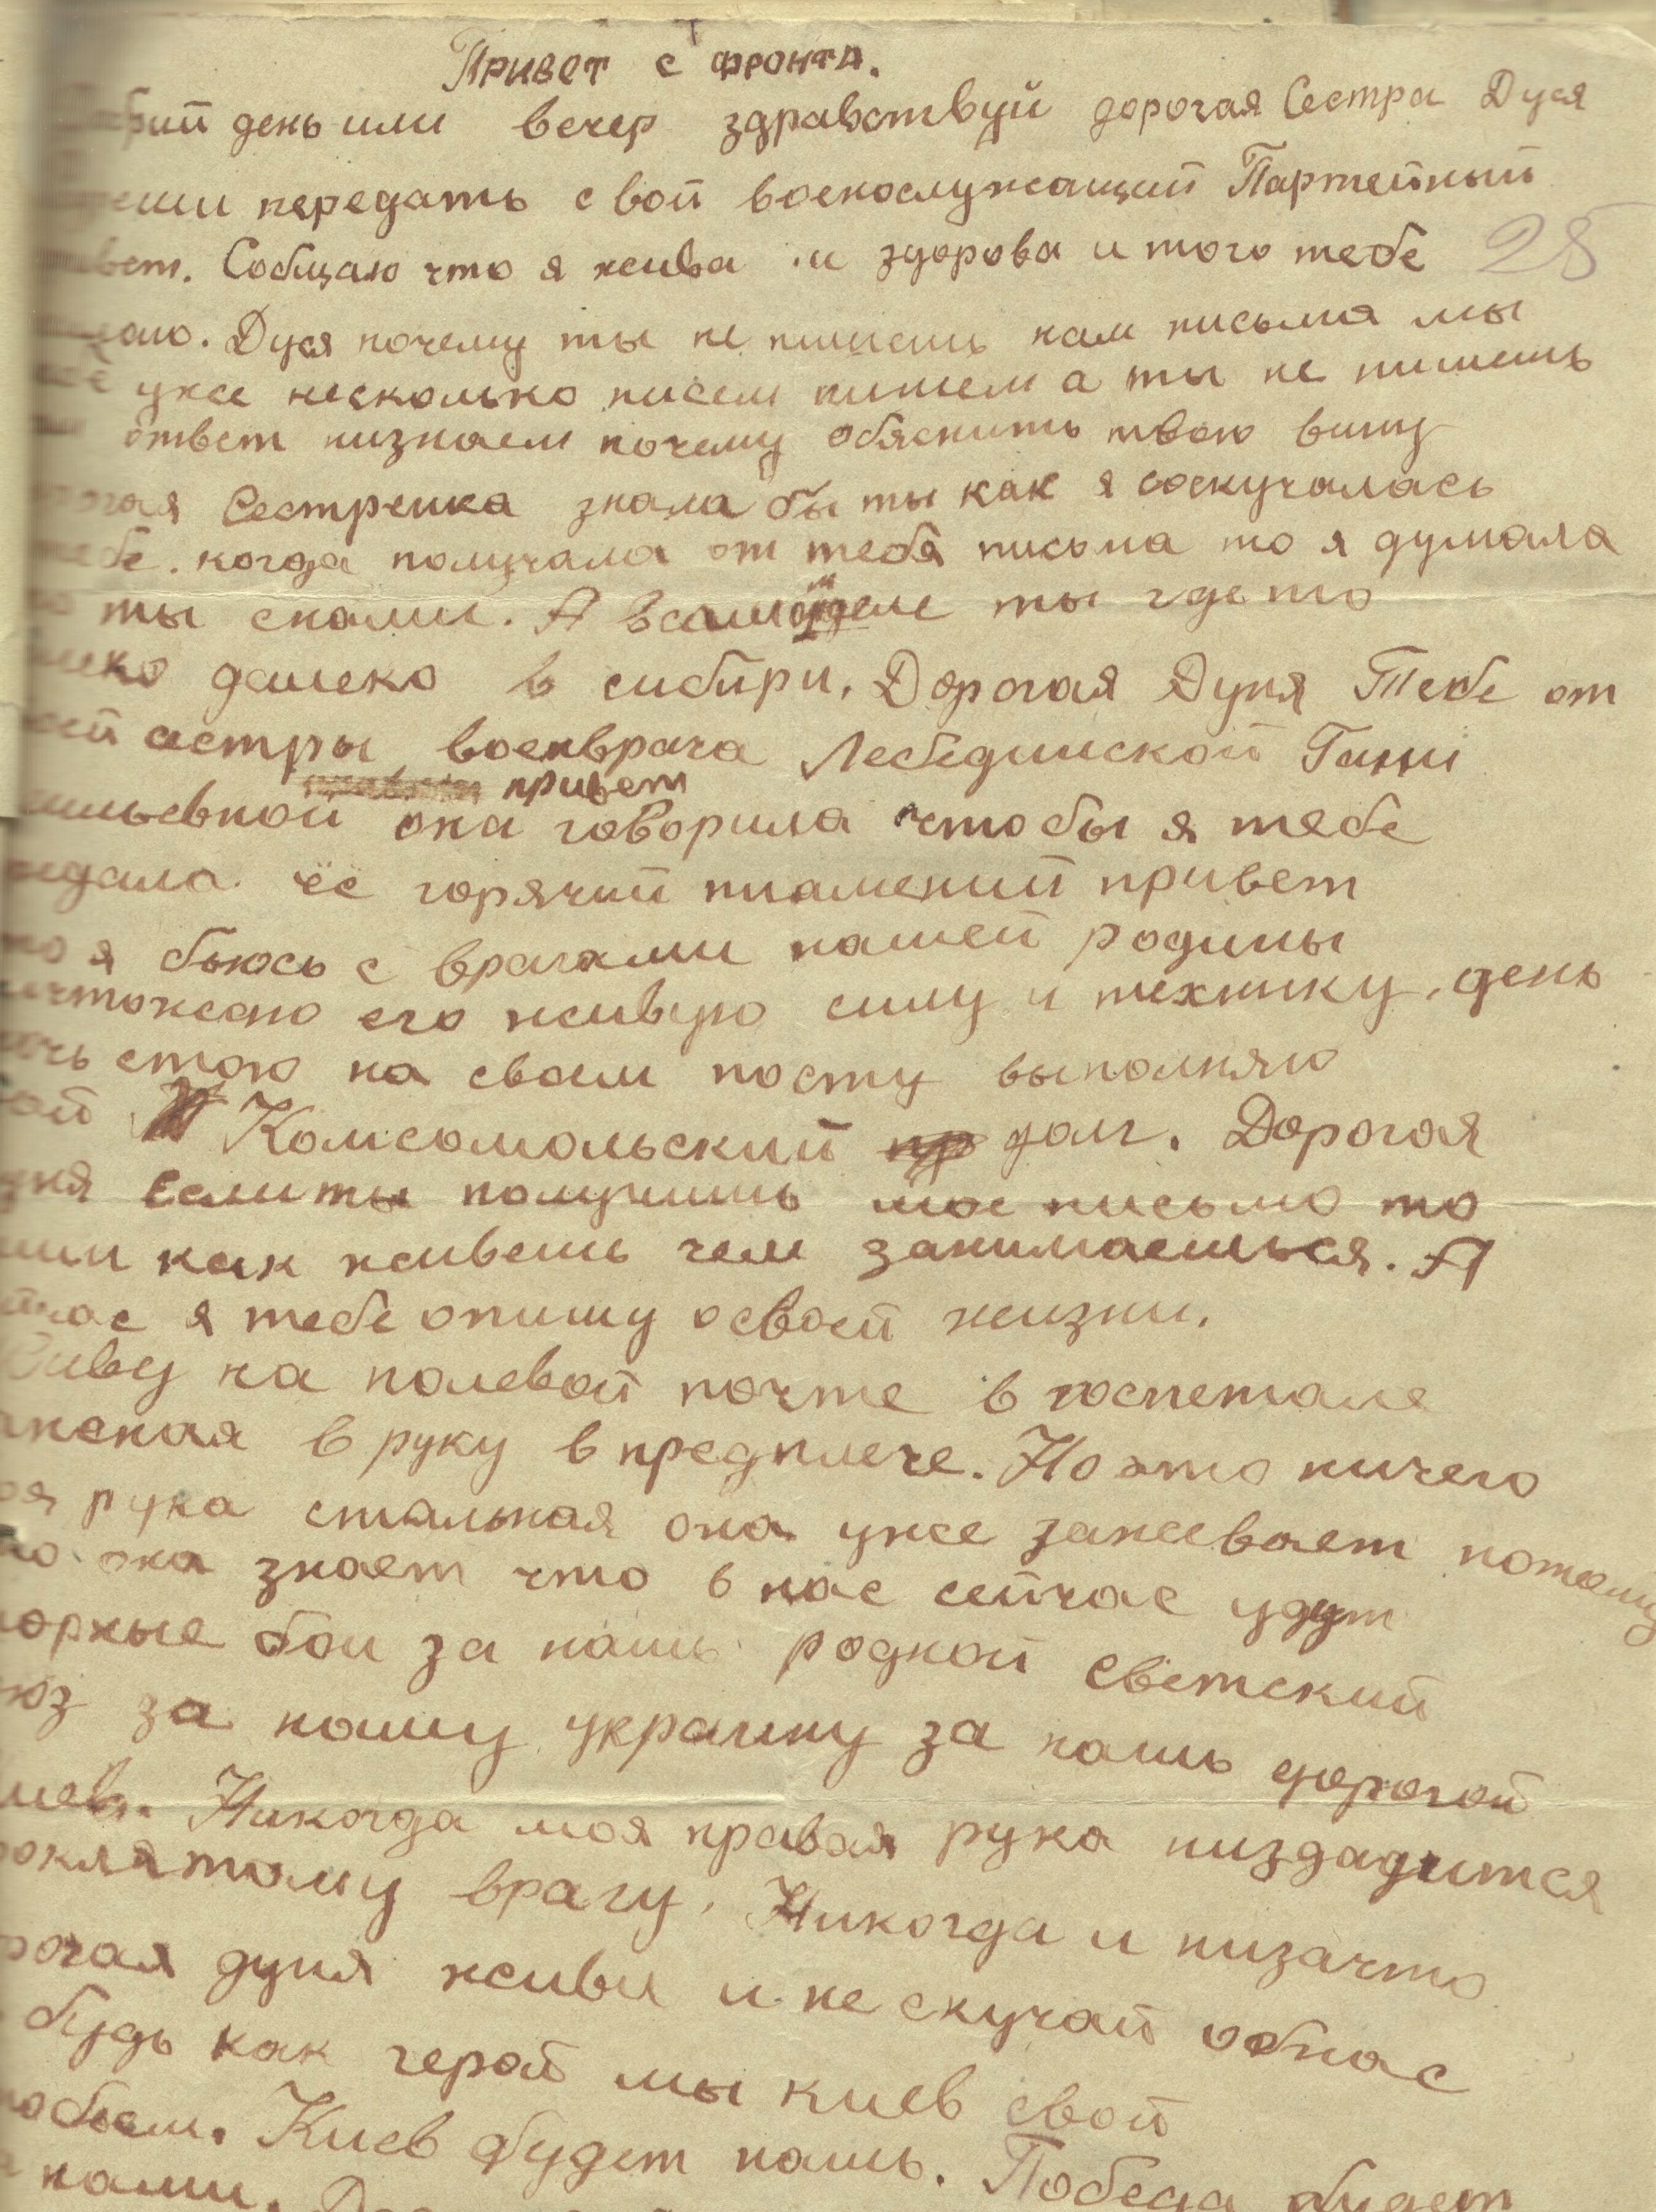 Привет с фронта.
брий день или вечер здравствуй дорогая Сестра Дуся
передать свой военослужащий Партейный
вет. Собщаю что я жива и здорова и того тебе 28
лаю. Дуся почему ты не пишешь нам письма мы
уже несколько писем пишем а ты не пишешь
ответ низнаем почему обяснить твою вину
рогая Сестренка знала бы ты как я соскучалась
тебе. когда получала от тебя письма то я думала
ты снами. А всамом деле ты где то
леко далеко в сибири. Дорогая Дуня Тебе от
ей сестры военврача Лебединской Ганни
привет
сильевной она говорила что бы я тебе
редала её горячий пламений привет
то я бьюсь с врагами нашей родины
ичтожаю его живую силу и технику. день
ночь стою на своем посту выполняю
ой Комсомольский долг. Дорогая
уня Если ты получишь мое письмо то
иши как живешь чем занимаешься. А
йчас я тебе опишу о своей жизни.
Живу на полевой почте в госпетале
аненая в руку в предплече. Но это ничего
оя рука стальная она уже заживает потому
то она знает что в нас сейчас удут
порные бои за нашь родной Светский
юз за нашу украину за нашь дорогой
иев. Никогда моя правая рука низдадится
роклятому врагу. Никогда и низачто
рогая дуня живи и не скучай обнас
будь как герой мы киев свой
тобьем. Киев будет нашь. Победа будет
нами.